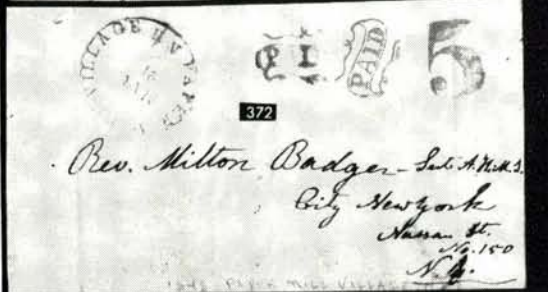 VILLAGE N.H. PAPER
PAID
5
372
Rev. Milton Badger - Sec. A.H.M.S.
City New York
Nassau St.
No. 150
N.Y.
1848 PAPER MILL VILLAGE